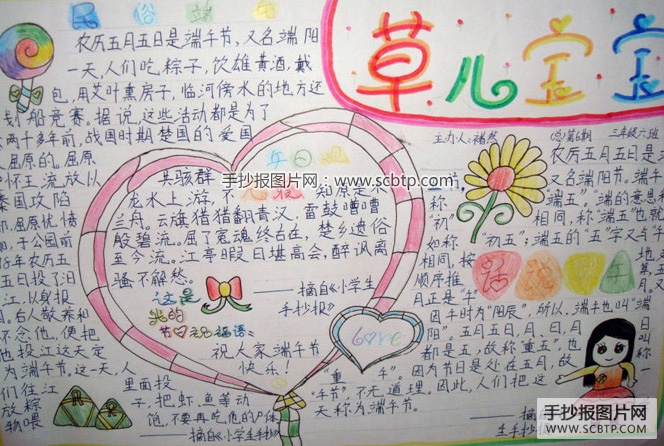 民俗端午
农历五月五日是端午节，又名端阳
一天，人们吃粽子，饮雄黄酒，戴
包，用艾叶熏房子，临河傍水的地方还
划船竞赛。据说，这些活动都是为了
两千多年前，战国时期楚国的爱国
屈原的。屈原
怀王流放以
秦国攻陷
屈原忧愤
于公园前
年农历五
五日投了汨
江，以身报
念他，便把
他投江这天定
为端午节，这一天，人
们往江
里面投
放粽
子，把虾、鱼等动
饱，不要再吃他的尸体
——摘自《小学生手抄》
午日
共骇群龙水上游，不
知原是
兰舟。云旗猎猎翻青汉，雷鼓嘈嘈
殷碧流。屈子冤魂终古在，楚乡遗俗
至今流。江亭暇日堪高会，醉讽离
骚不解愁。
——摘自《小学生
手抄报》
这是
我的
节日祝福语：
祝大家端午节
快乐！
Love
草儿宝宝
主办人：褚然
总第6期
三年级六班
农历五月五日是
又名端阳节。端午
称“端五”。端的意思和
相同，称“端五”也就
如称“初五”；端五的“五”字又与“午
相同，按
话端午
顺序推
月正是“午”
因午时为“阳辰”，所以，端午也叫“端
阳”。五月五日，月、日，月
都是五，故称“重五”，也
“重午”。
因为节日是处在五月，故
“午节”不无道理。因此，人们把这
天称为端午节。
——摘自
生手抄报
手抄报图片网
www.scbtp.com
手抄报图片网
WWW.SCBTP.COM